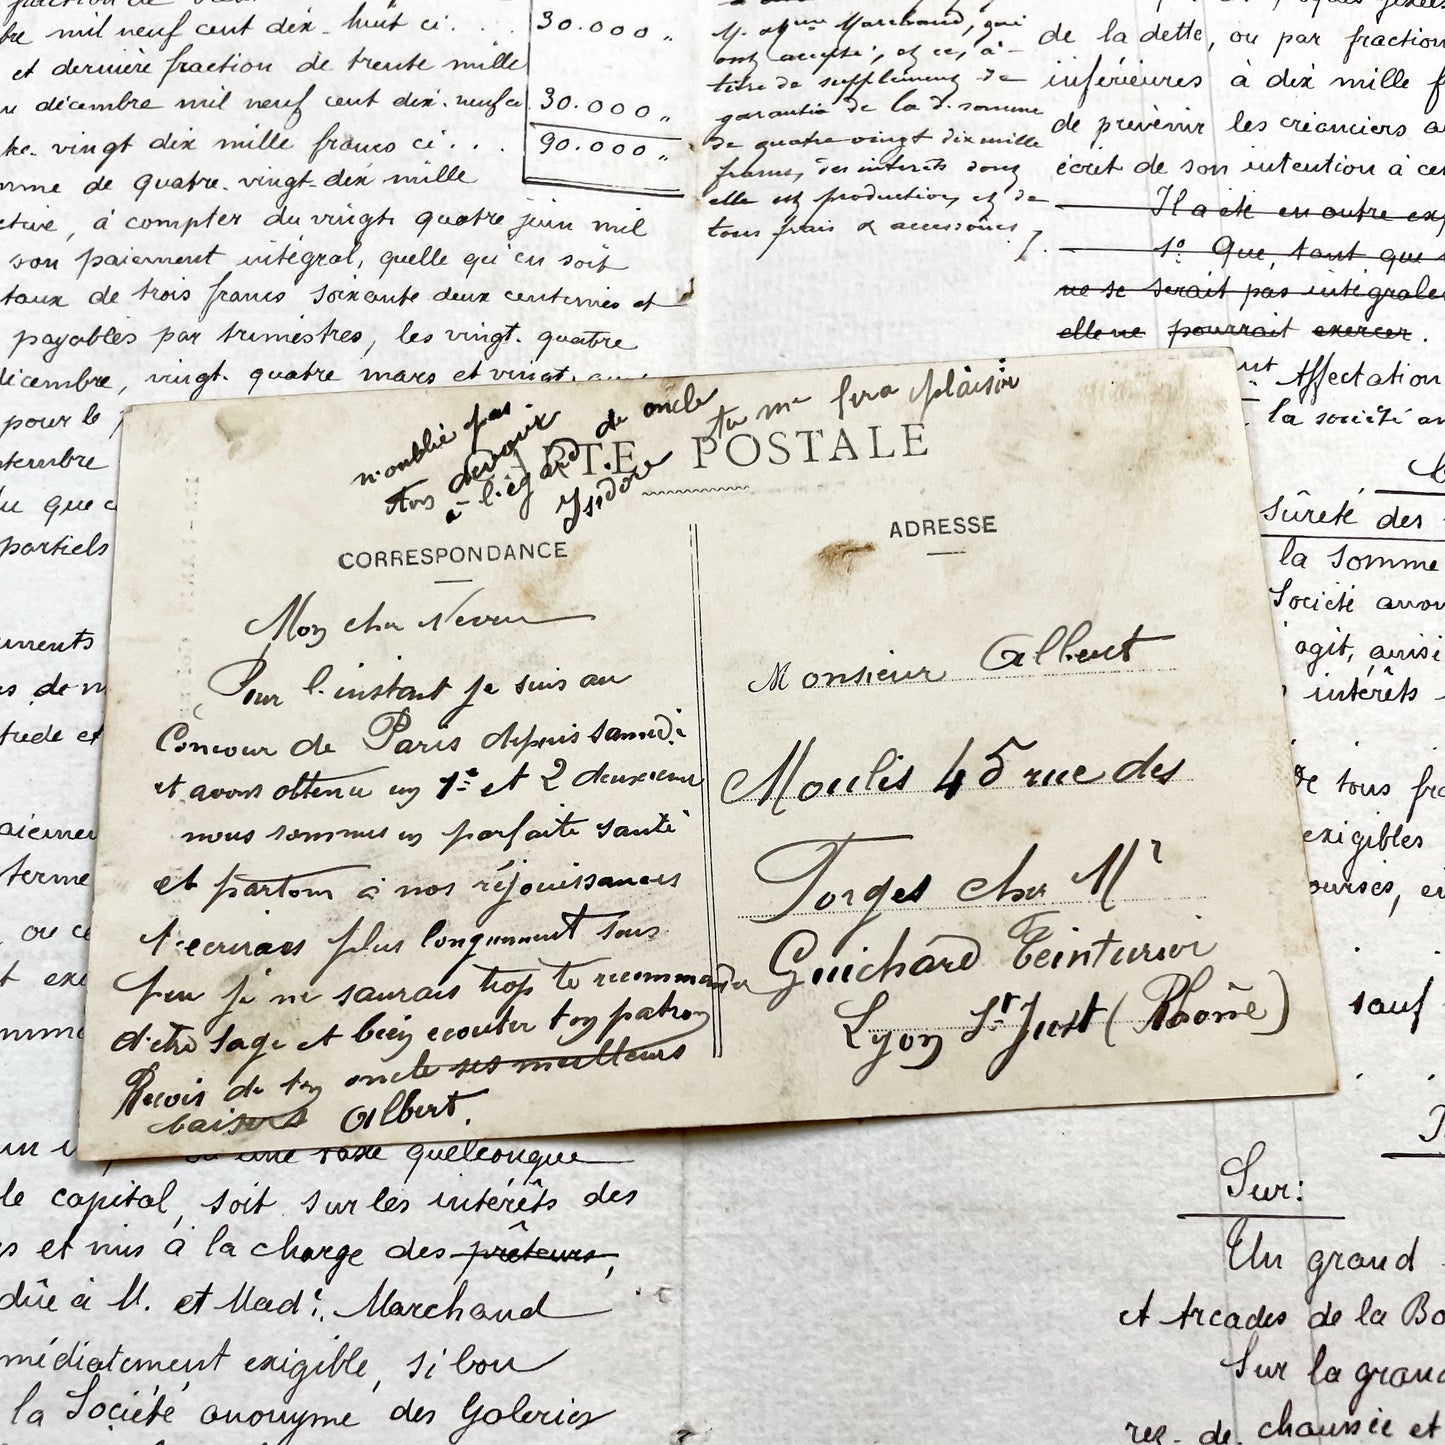 bre mil neuf cent dix-huit ci. . .
30.000 „
et dernière fraction de trente mille
décembre mil neuf cent dix-neuf ci
30.000 „
tre-vingt dix mille francs ci . . .
90.000 „
mme de quatre-vingt-dix mille
ctive, à compter du vingt quatre juin mil
son paiement intégral, quelle qu'en soit
taux de trois francs soixante deux centimes et
payables par trimestres, les vingt-quatre
décembre, vingt-quatre mars et vingt
pour le
ptembre
du que
partiels
M. & Mme Marchand, qui
ont accepté; et ce, à
titre de supplément de
garantie de la d. somme
de quatre vingt dix mille
francs, des intérêts dont
elle est productive, et de
tous frais & accessoires
de la dette, ou par fraction
inférieures à dix mille f
de prévenir les créanciers a
écrit de son intention à cet
Il a été en outre exp
1º Que, tant que
ne se serait pas intégrale
elle ne pourrait exercer.
Affectation
la société an
Sûreté des
la somme
Société anon
agit, ainsi
intérêts
De tous fra
exigibles
sauf
n'oublie pas
ton devoir
à l'égard de oncle
Isidore
tu me fera plaisir
CARTE POSTALE
CORRESPONDANCE
ADRESSE
Mon cher Neveu
Pour l'instant je suis au
Concour de Paris depuis samedi
et avons obtenu un 1er et 2 deuxieme
nous sommes en parfaite santé
et partons à nos réjouissances
t'ecrirais plus longuement sous
peu je ne saurais trop te recommander
d'etre sage et bien ecouter ton patron
Recois de ton oncle ses meilleurs
baisers Albert.
Monsieur Albert
Moulis 45 rue des
Forges chez Mr
Guichard Teinturier
Lyon St Just (Rhône)
uments
trede et
aiemen
terme
ou ce
une taxe quelconque
le capital, soit sur les intérêts des
et mis à la charge des prêteurs,
dûe à M. et Made. Marchand
médiatement exigible, si bon
la Société anonyme des Galeries
Sur:
Un grand
et Arcades de la Bo
Sur la grand
rez-de-chaussée et